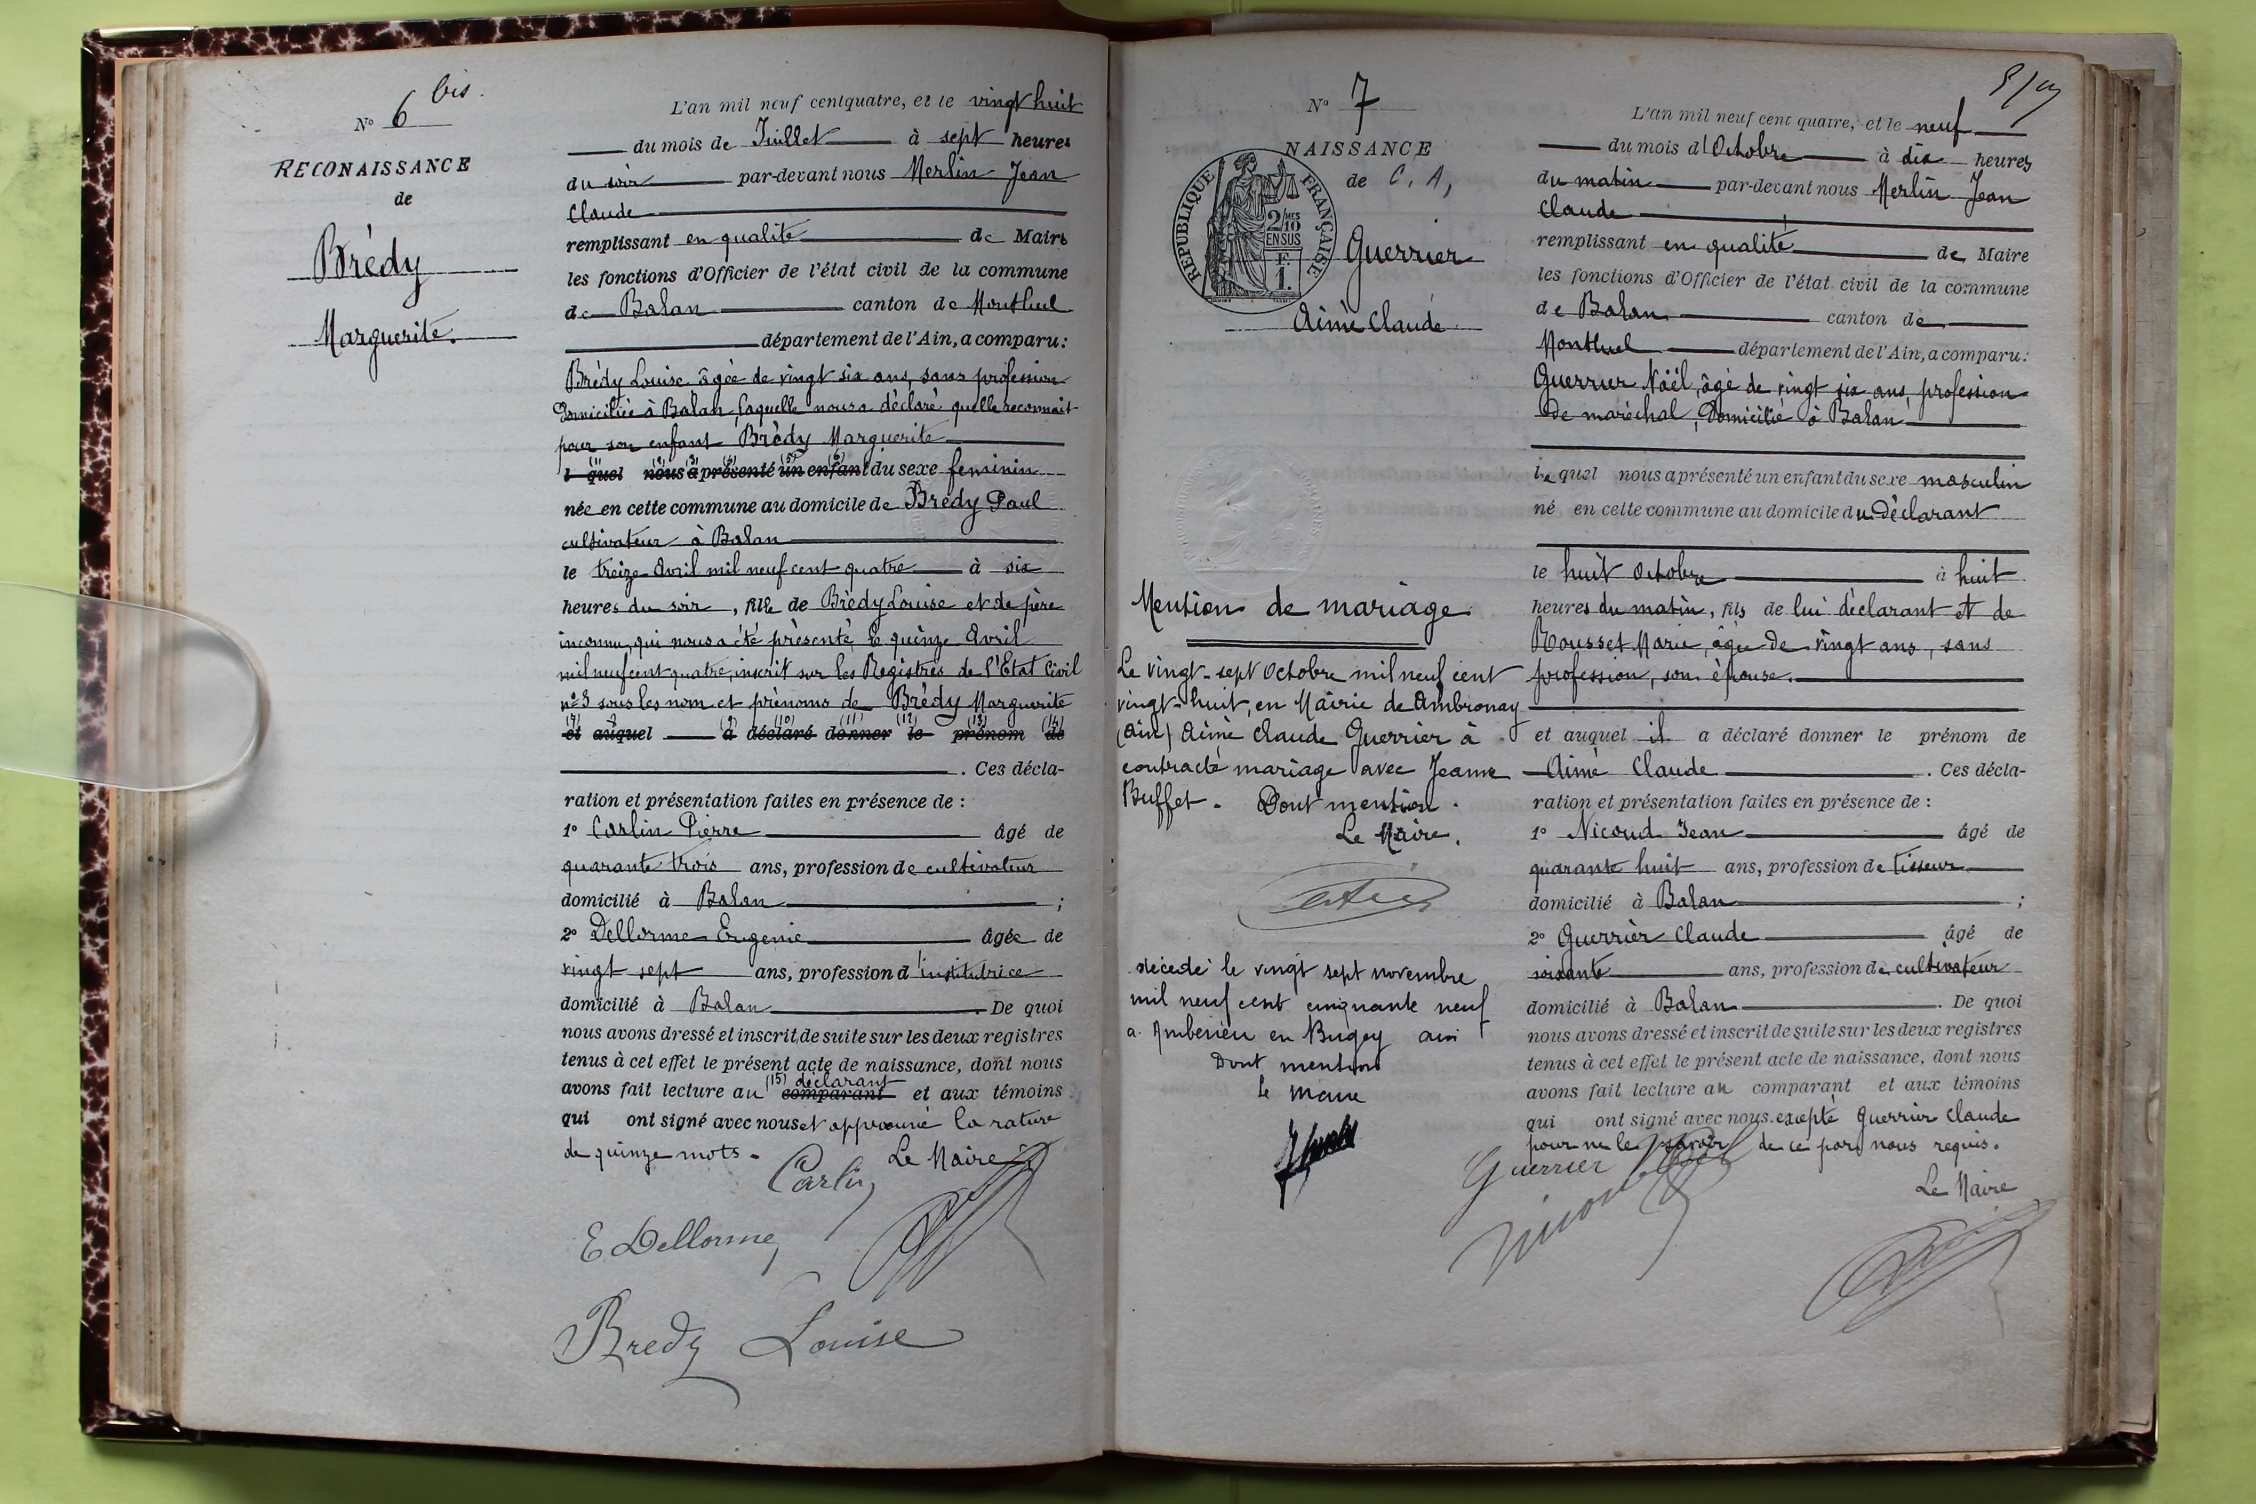 N° 6 bis.
RECONAISSANCE
de
Brédy
Marguerite.
L'an mil neuf cent quatre, et le vingt huit
du mois de Juillet à sept heures
du soir par-devant nous Merlin Jean
Claude
remplissant en qualité de Maire
les fonctions d'Officier de l'état civil de la commune
de Balan canton de Montluel
département de l'Ain, a comparu :
Brédy Louise âgée de vingt six ans, sans profession
domiciliée à Balan, laquelle nous a déclaré quelle reconnait
pour son enfant Brèdy Marguerite
(1) (2) (3) (4) (5) (6)
l quel nous a présenté un enfant du sexe feminin
née en cette commune au domicile de Brédy Paul
cultivateur à Balan
le treize Avril mil neuf cent quatre à six
heures du soir, fille de Brèdy Louise et de père
inconnu, qui nous a été présenté le quinze Avril
mil neuf cent quatre, inscrit sur les Registres de l'Etat Civil
n° 3 sous les nom et prénoms de Brédy Marguerite
(7) (8) (9) (10) (11) (12) (13) (14)
et auquel a déclaré donner le prénom de
. Ces décla-
ration et présentation faites en présence de :
1° Carlin Pierre âgé de
quarante trois ans, profession de cultivateur
domicilié à Balan ;
2° Dellorme Eugenie âgée de
vingt sept ans, profession d'institutrice
domicilié à Balan . De quoi
nous avons dressé et inscrit de suite sur les deux registres
tenus à cet effet le présent acte de naissance, dont nous
(15) déclarant
avons fait lecture au comparant et aux témoins
qui ont signé avec nous et approuvé la rature
de quinze mots.
Le Maire
Carlin
E Dellorme
Bredy Louise
N° 7
NAISSANCE
de C. A,
REPUBLIQUE FRANÇAISE
2/10 MES
EN SUS
F
1.
Guerrier
Aimé Claude
Mention de mariage
Le vingt-sept Octobre mil neuf cent
vingt-huit, en Mairie de Ambronay
(Ain) Aimé Claude Guerrier à
contracté mariage avec Jeanne
Buffet. Dont mention.
Le Maire.
décédé le vingt sept novembre
mil neuf cent cinquante neuf
a Amberieu en Bugey ain
Dont mention
le maire
L'an mil neuf cent quatre, et le neuf
du mois d'Octobre à dix heures
du matin par-devant nous Merlin Jean
Claude
remplissant en qualité de Maire
les fonctions d'Officier de l'état civil de la commune
de Balan canton de
Montluel département de l'Ain, a comparu :
Guerrier Noël, âgé de vingt six ans, profession
de maréchal, domicilié à Balan
le quel nous a présenté un enfant du sexe masculin
né en cette commune au domicile du déclarant
le huit Octobre à huit
heures du matin, fils de lui déclarant et de
Rousset Marie, âgée de vingt ans, sans
profession, son épouse.
et auquel il a déclaré donner le prénom de
Aimé Claude . Ces décla-
ration et présentation faites en présence de :
1° Nicoud Jean âgé de
quarante huit ans, profession de tisseur
domicilié à Balan ;
2° Guerrier Claude âgé de
soixante ans, profession de cultivateur
domicilié à Balan . De quoi
nous avons dressé et inscrit de suite sur les deux registres
tenus à cet effet le présent acte de naissance, dont nous
avons fait lecture au comparant et aux témoins
qui ont signé avec nous. excepté Guerrier Claude
pour ne le savoir de ce par nous requis.
Le Maire
Guerrier Noël
Nicoud